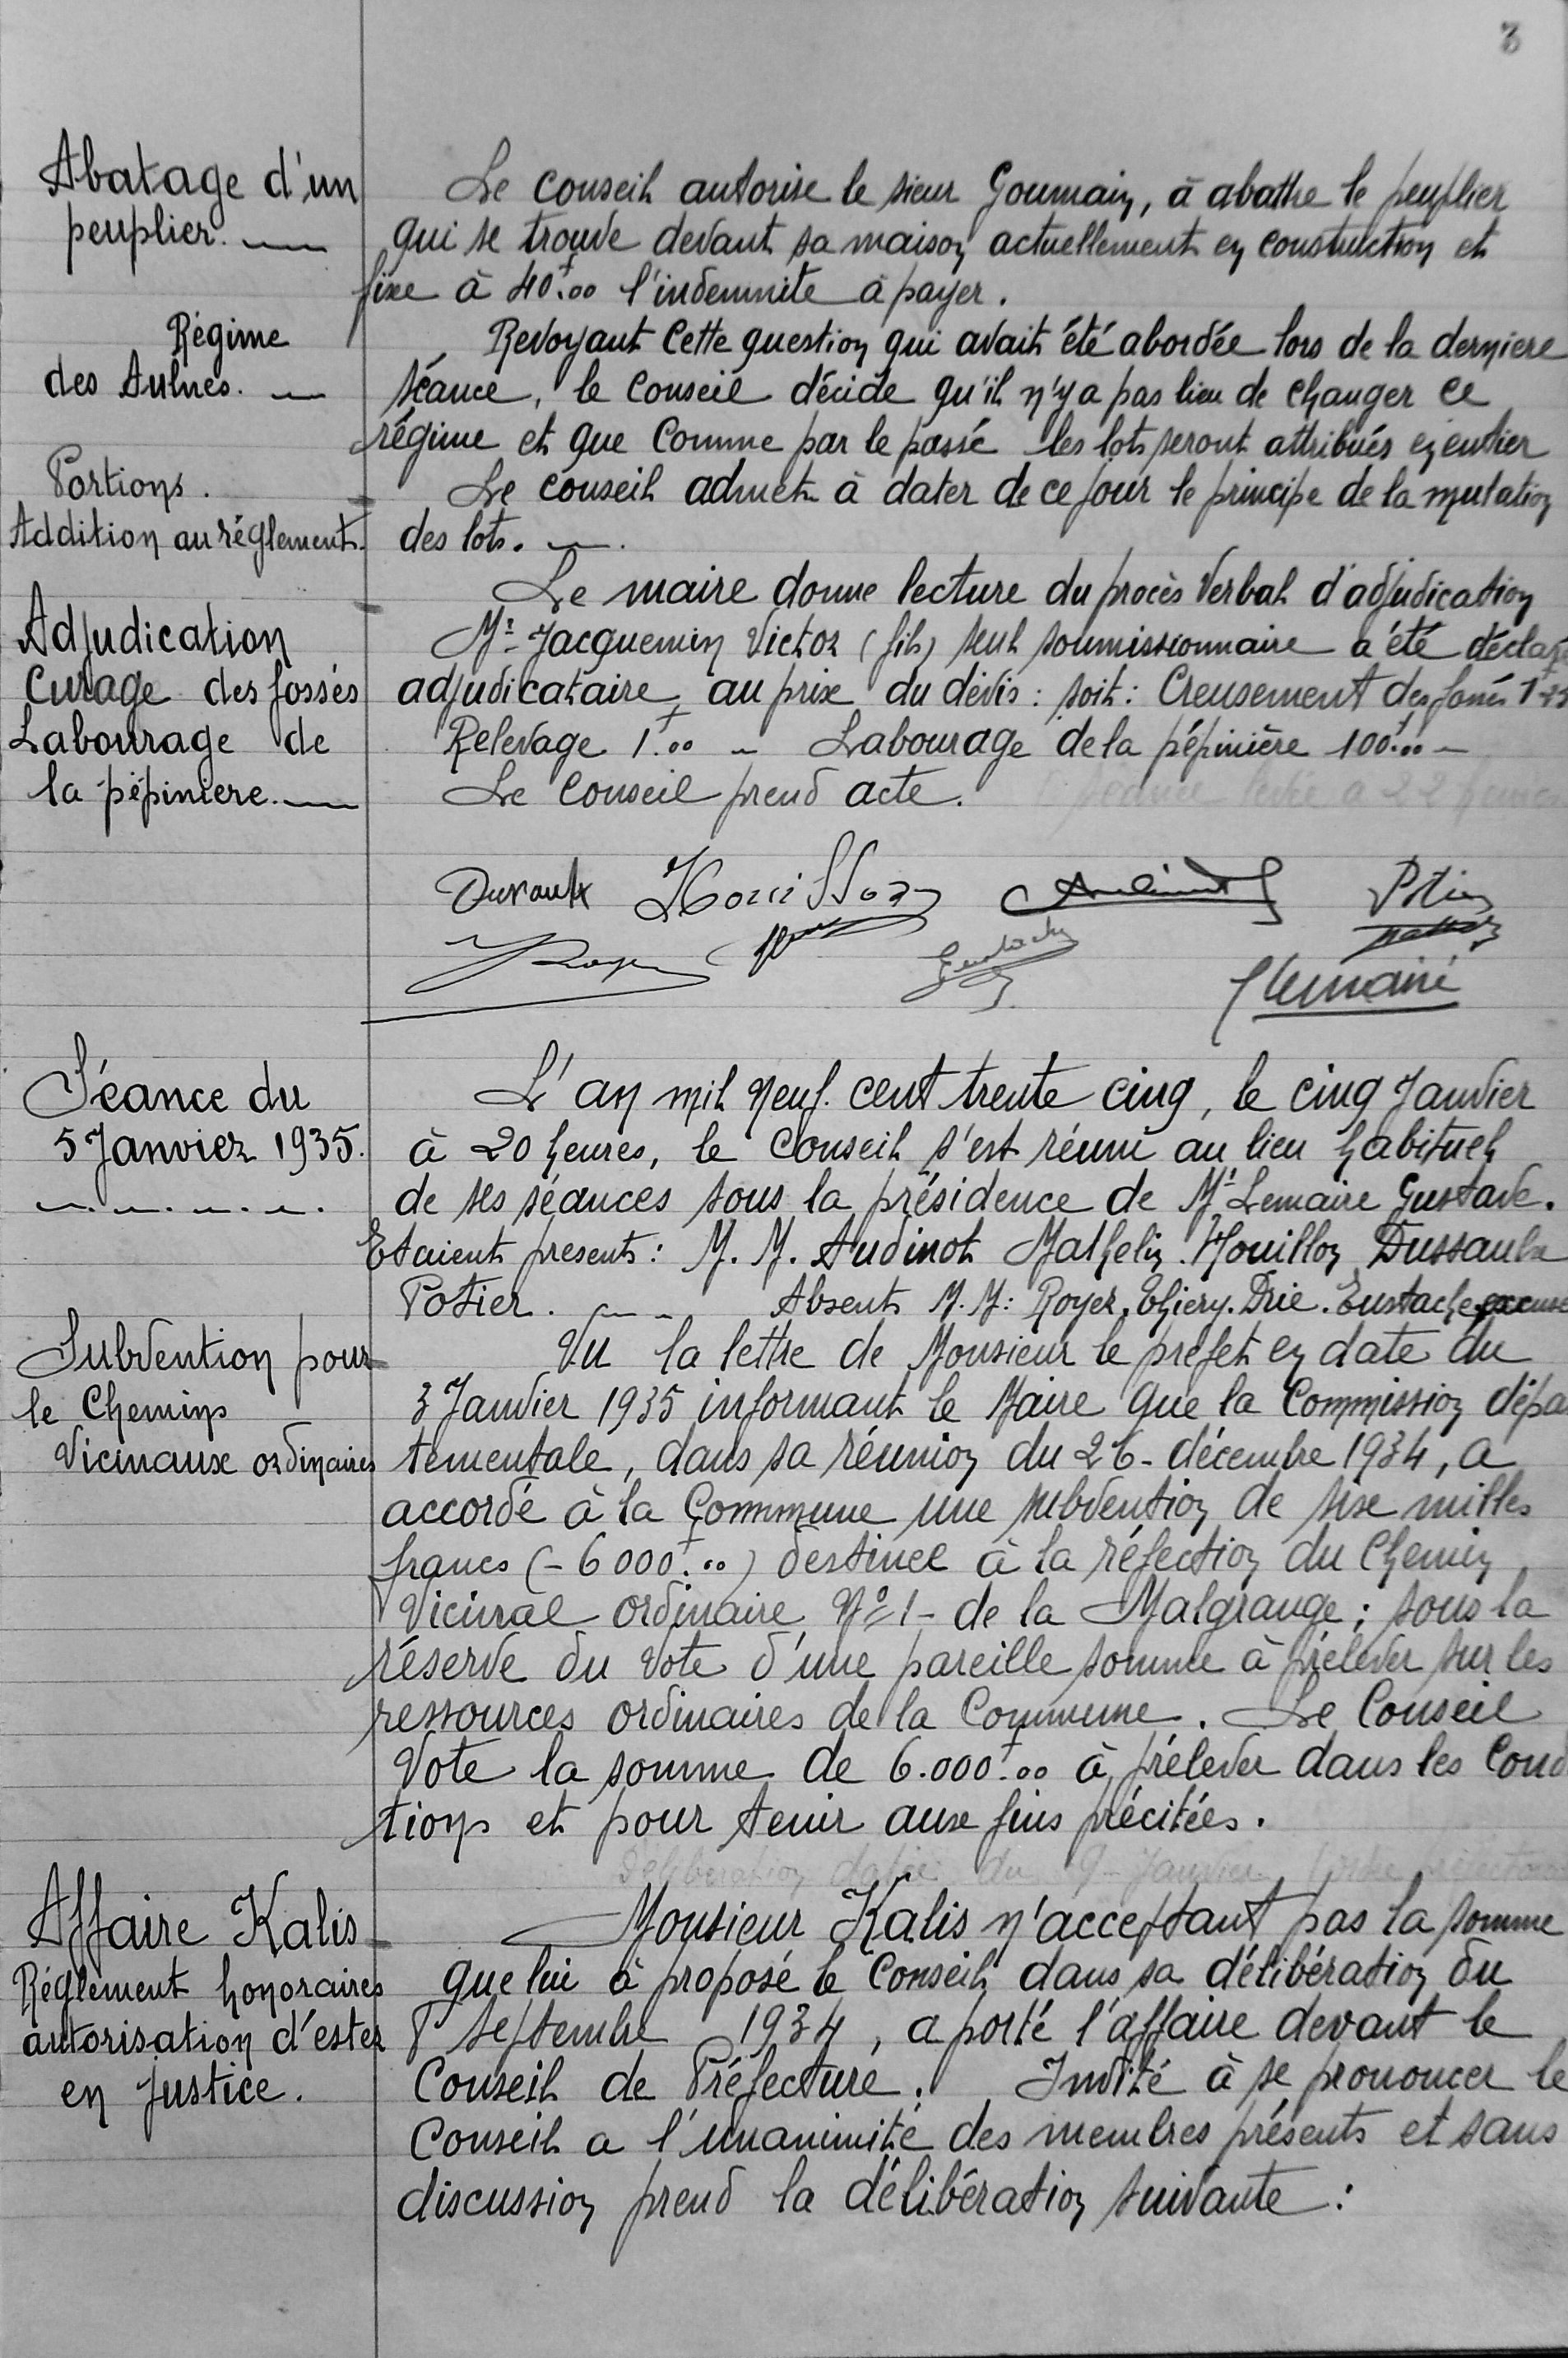 3
Abatage d'un
peuplier.
Le conseil autorise le sieur Goumain, à abattre le peuplier
qui se trouve devant sa maison actuellement en construction et
fixe à 40f.00 l'indemnité à payer.
Régime
des Aulnes.
Revoyant cette question qui avait été abordée lors de la derniere
séance, le Conseil décide qu'il n'y a pas lieu de changer ce
régime et que comme par le passé les lots seront attribués en entier
Portions.
Addition au réglement.
Le conseil admet à dater de ce jour le principe de la mutation
des lots.
Adjudication
Curage des fossés
Labourage de
la pépiniere.
Le maire donne lecture du procès verbal d'adjudication
Mr Jacquemin Victor (fils) seul soumissionnaire a été déclaré
adjudicataire au prix du devis : soit : Creusement des fossés
Relevage 1f.00 - Labourage de la pépinière 100f.00 -
Le Conseil prend acte.
Houillon
Eustache
Lemaire
Séance du
5 Janvier 1935.
L'an mil neuf cent trente cinq, le cinq Janvier
à 20 heures, le Conseil s'est réuni au lieu habituel
de ses séances sous la présidence de Mr Lemaire Gustave.
Etaient presents : M. M. Audinot Mathelin Houillon Dussaulx
Potier. Absents M. M : Royer. Thiery. Drie. Eustache excusé
Subvention pour
le Chemins
Vicinaux ordinaires
Vu la lettre de Monsieur le prefet en date du
3 Janvier 1935 informant le Maire que la Commission dépar
tementale, dans sa réunion du 26 - décembre 1934, a
accordé à la Commune une subvention de six milles
francs (- 6000f.00) destinee à la réfection du Chemin
Vicinal ordinaire No 1 - de la Malgrange ; sous la
réserve du vote d'une pareille somme à prélever sur les
ressources ordinaires de la Commune. Le Conseil
Vote la somme de 6.000f.00 à prélever dans les Condi
tions et pour tenir aux fins précitées.
Affaire Kalis
Réglement honoraires
autorisation d'ester
en Justice.
Monsieur Kalis n'acceptant pas la somme
que lui à proposé le Conseil dans sa délibération du
8 septembre 1934, a porté l'affaire devant le
Conseil de Préfecture. Invité à se prononcer le
Conseil a l'unanimité des membres présents et sans
discussion prend la délibération suivante :